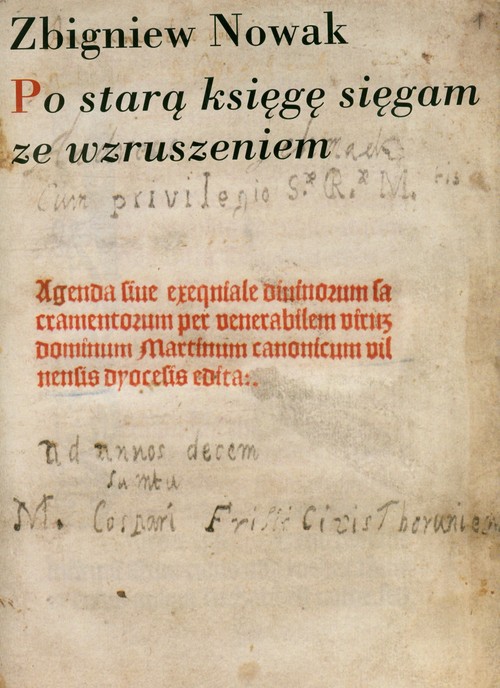 Zbigniew Nowak
Po starą księgę sięgam
ze wzruszeniem
Cum privilegio S. R. M.
Agenda siue exeqniale diuinorum sa
cramentorum per venerabilem viruz
dominum Martinum canonicum vil
nensis dyocesis edita:.
ad annos decem
M. Caspari Frisii Civis Thorunien